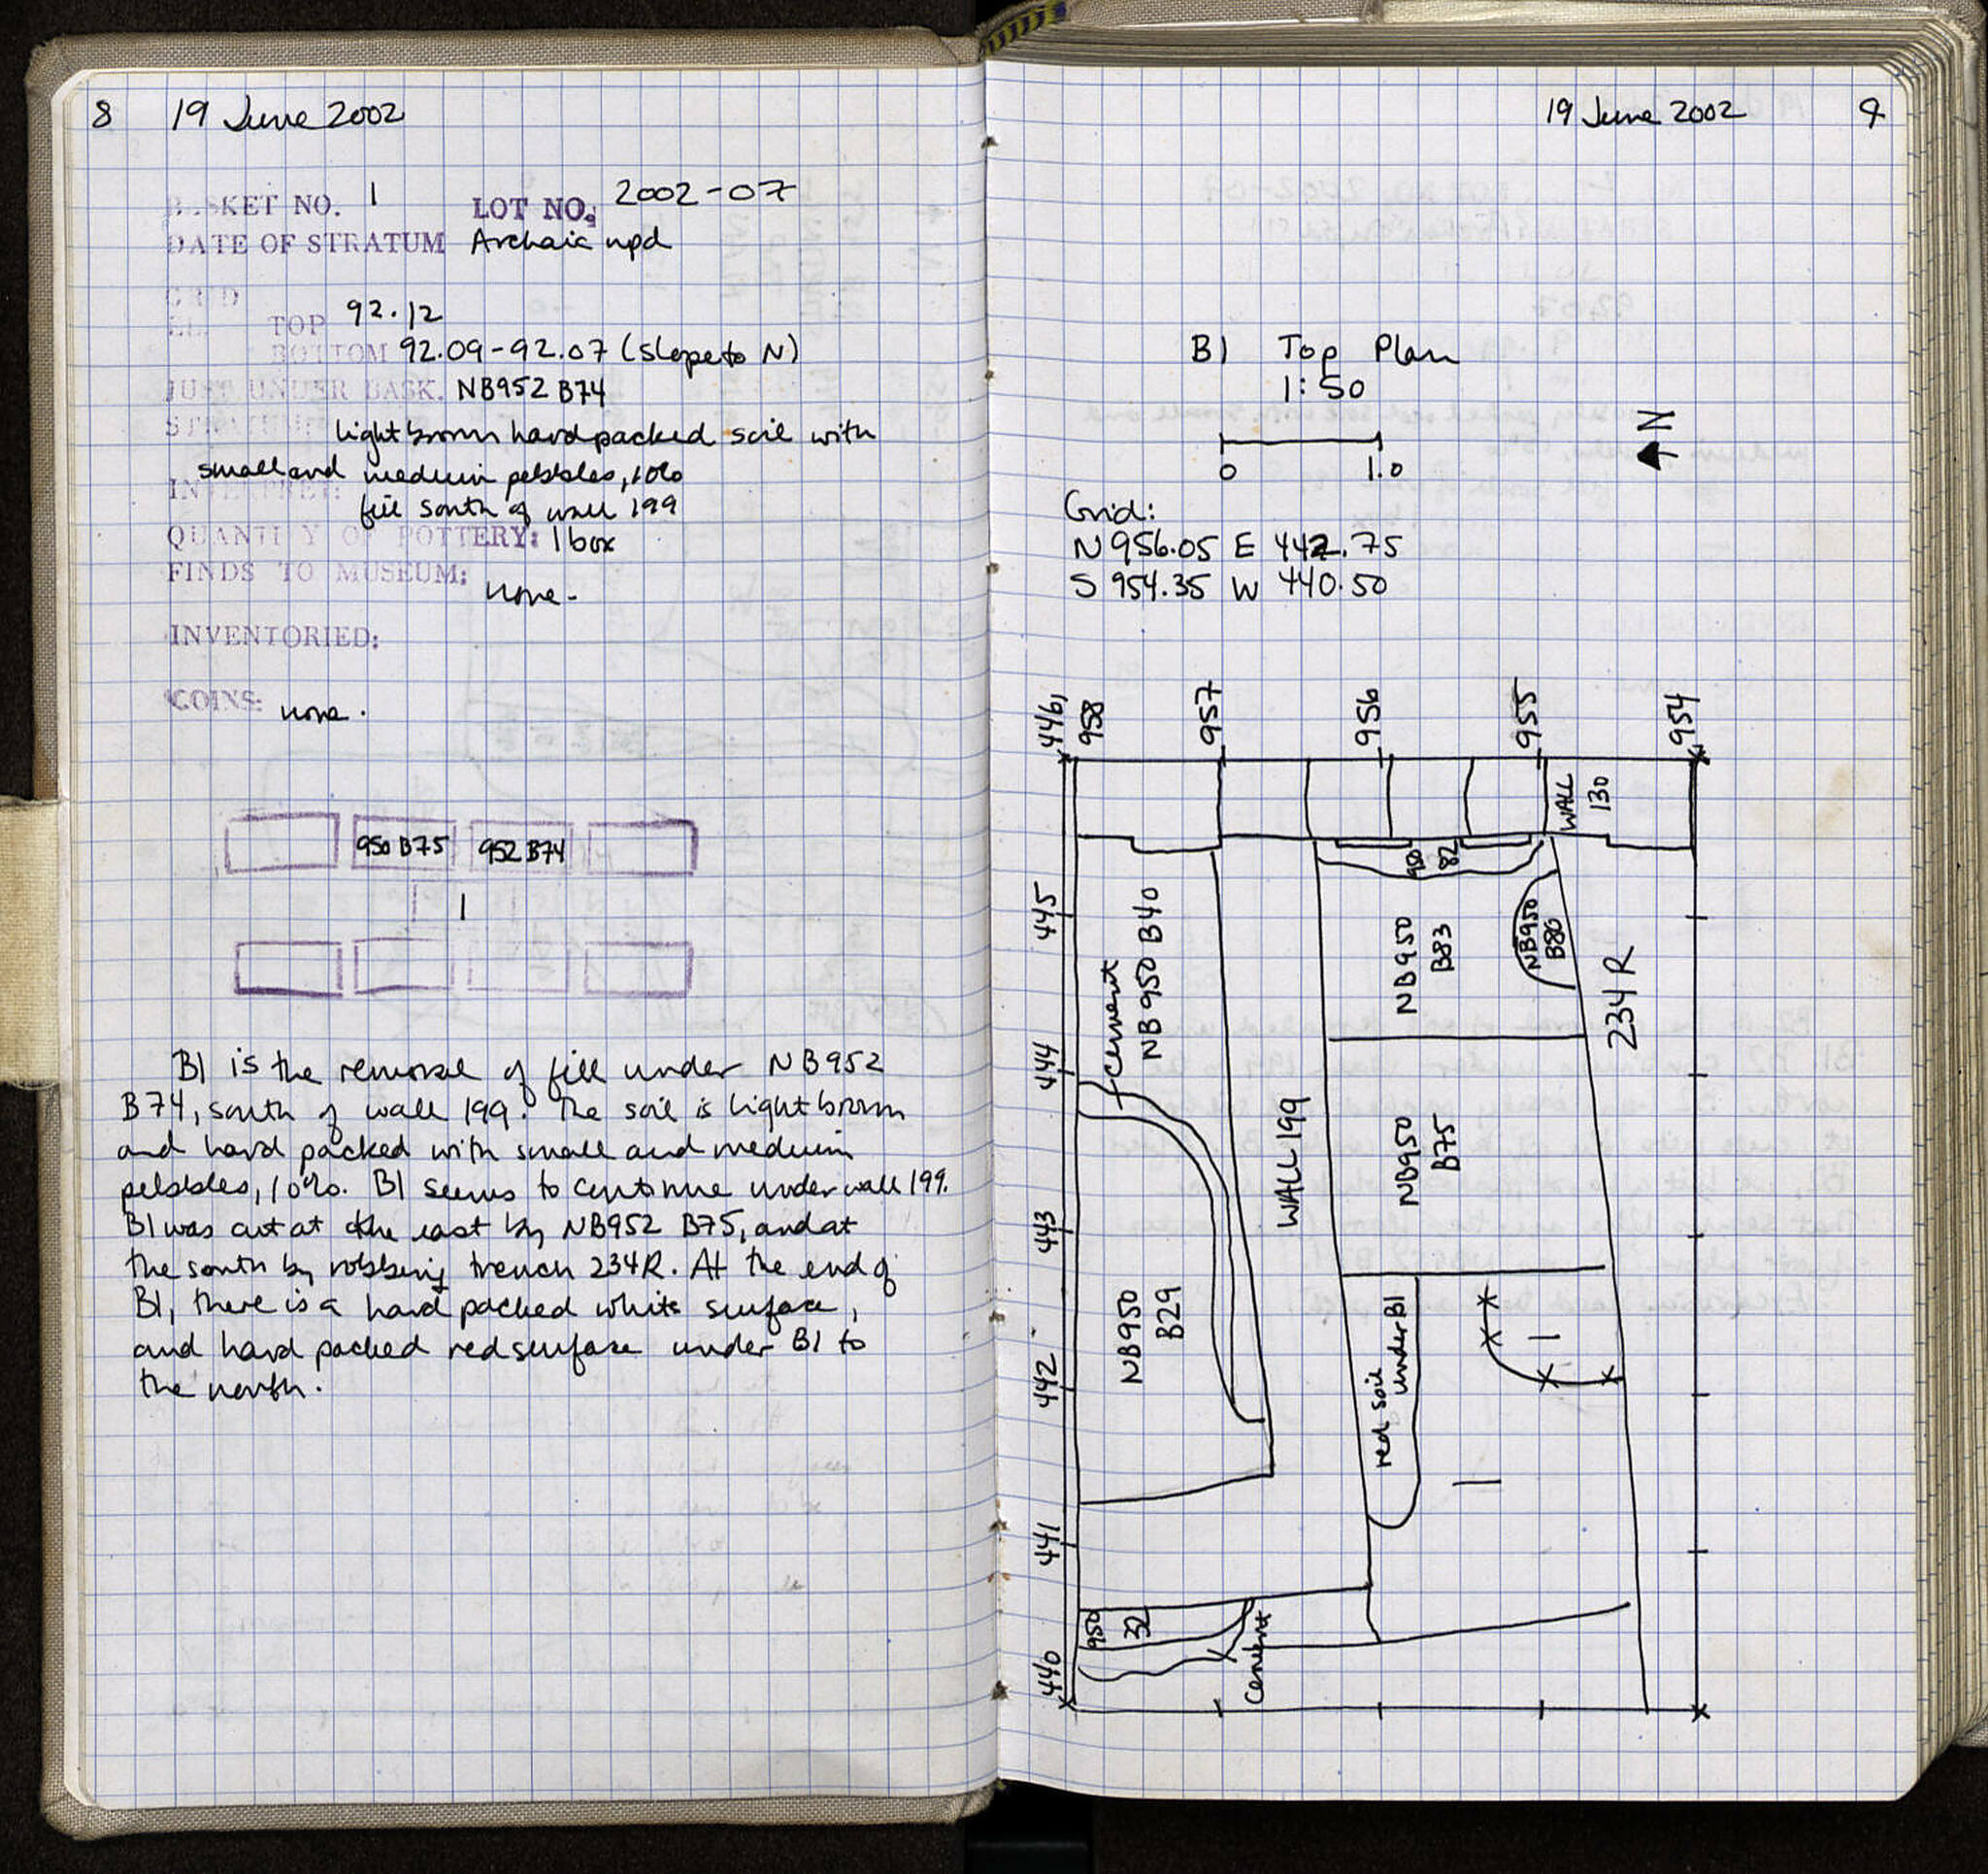 8 19 June 2002
BASKET NO. 1 LOT NO. 2002-07
DATE OF STRATUM Archaic npd
GRID
EL. TOP 92.12
BOTTOM 92.09-92.07 (slope to N)
JUST UNDER BASK. NB952 B74
light brown hard packed soil with
small and medium pebbles, 10%
INTERPRET:
fill south of wall 199
QUANTITY OF POTTERY: 1 box
FINDS TO MUSEUM: none.
INVENTORIED:
COINS: none.
950 B75 952 B74
1
B1 is the removal of fill under NB952
B74, south of wall 199. The soil is light brown
and hard packed with small and medium
pebbles, 10%. B1 seems to continue under wall 199.
B1 was cut at the east by NB952 B75, and at
the south by robbing trench 234R. At the end of
B1, there is a hard packed white surface,
and hard packed red surface under B1 to
the north.
19 June 2002 9
B1 Top Plan
1:50
N
0 1.0
Grid:
N 956.05 E 442.75
S 954.35 W 440.50
446, 958 957 956 955 954
WALL 130
950 82
445
cement
NB950 B40
NB950 B83
NB950 B80
234R
444
WALL 199
NB950 B75
443
NB950 B29
red soil under B1
1
442
1
441
950 32
cement
440